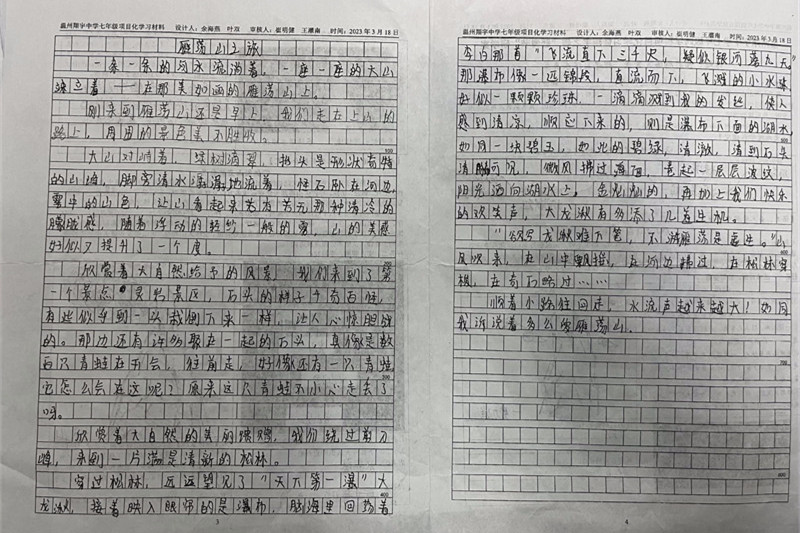 温州翔宇中学七年级项目化学习材料 设计人：余海燕 叶双 审核人：崔明健 王灌南 时间：2023年3月18日
雁荡山之旅
一条一条的河水流淌着，一座一座的大山
矗立着——在那美如画的雁荡山上。
刚来到雁荡山还是早上，我们走在上山的
路上，周围的景色美不胜收。
大山对峙着，绿树滴翠，抬头是形状奇特
的山峰，脚旁清水潺潺地流着，怪石卧在河边，
雾中的山色，让山看起来若有若无那种清冷的
朦胧感，随着浮动的轻纱一般的雾，山的美感
好似又提升了一个度。
欣赏着大自然给予的风景，我们来到了第
一个景点 灵 景区，石头的样子千奇百怪，
有些似乎到一 倒下来一样，让人心惊胆战
的。那边还有许多聚在一起的石头，真像是数
百只青蛙在开会，往前走，好像还有一只青蛙
它怎么会在这呢？原来这只青蛙不小心走丢了
呀。
欣赏着大自然的美丽馈赠，我们绕过剪刀
峰，来到一片满是清新的松林。
穿过松林，远远望见了“天下第一瀑”大
龙湫，接着映入眼帘的是瀑布，脑海里回荡着
3
温州翔宇中学七年级项目化学习材料 设计人：余海燕 叶双 审核人：崔明健 王灌南 时间：2023年3月18日
李白那首“飞流直下三千尺，疑似银河落九天。”
那瀑布像一 锦缎，直流而下，飞溅的小水珠
好似一颗颗珍珠，一滴滴溅到我的发丝，使人
感到清凉，顺应下来的，则是瀑布下面的湖水，
如同一块碧玉，如此的碧绿，清澈，清到石头
清晰可见，微风拂过湖面，卷起一层层波纹，
阳光洒向湖水上。色 的，再加上我们快乐
的欢笑声，大龙湫有多添了几道生机。
“欲写龙湫难下笔，不游雁荡是虚生。”山
风吹来，在山中飘摇，在河边拂过，在松林穿
梭，在奇石略过……
顺着小路往回走，水流声越来越大！如同
我诉说着多么 雁荡山。
4